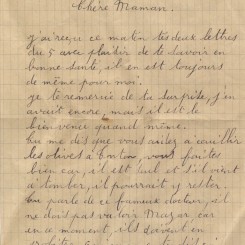 Chère Maman.
j'ai reçu ce matin tes deux lettres
du 5 avec plaisir de te savoir en
bonne santé, il en est toujours
de même pour moi.
je te remercie de la surprise, j'en
avait encore, mais il est le
bien venue quand même.
Tu me dés que vous aidez a cueillir
les olives à bouton, vous faites
bien car, il est tard et s'il vient
à tomber, il pourrait y rester.
Tu parle de ce fameux docteur, il
ne doit pas valoir Mazar, car
en ce moment, ils doivent